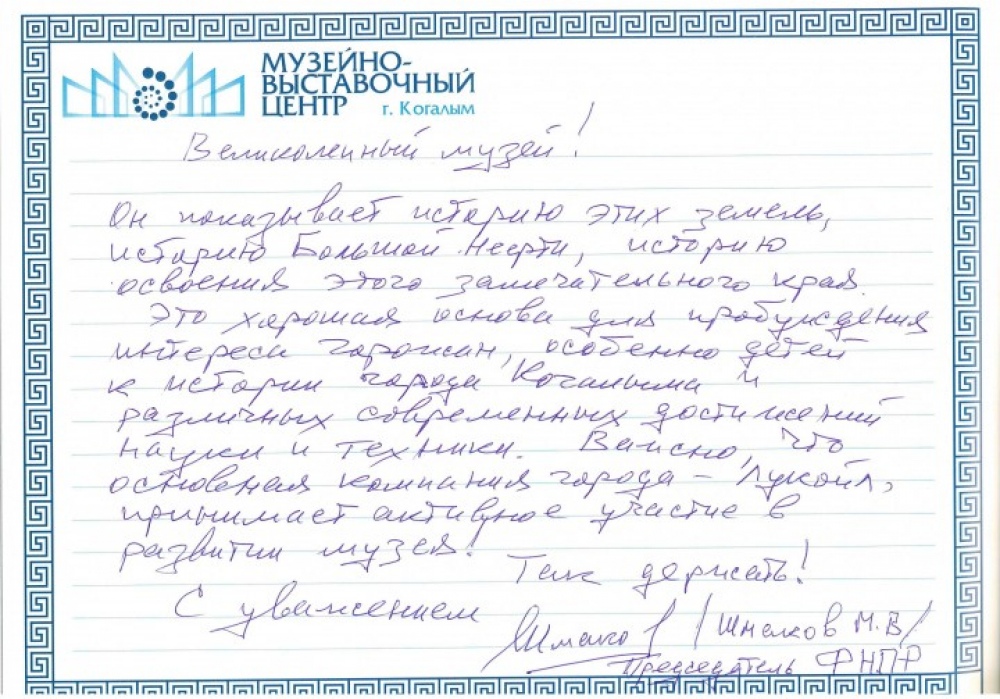 МУЗЕЙНО-
ВЫСТАВОЧНЫЙ
ЦЕНТР г. Когалым
Великолепный музей!
Он показывает историю этих земель,
историю Большой Нефти, историю
освоения этого замечательного края.
Это хорошая основа для пробуждения
интереса горожан, особенно детей
к истории города Когалыма и
различных современных достижений
науки и техники. Важно, что
основная компания города - Лукойл,
принимает активное участие в
развитии музея!
Так держать!
С уважением
Шмаков /Шмаков М.В/
Председатель ФНПР